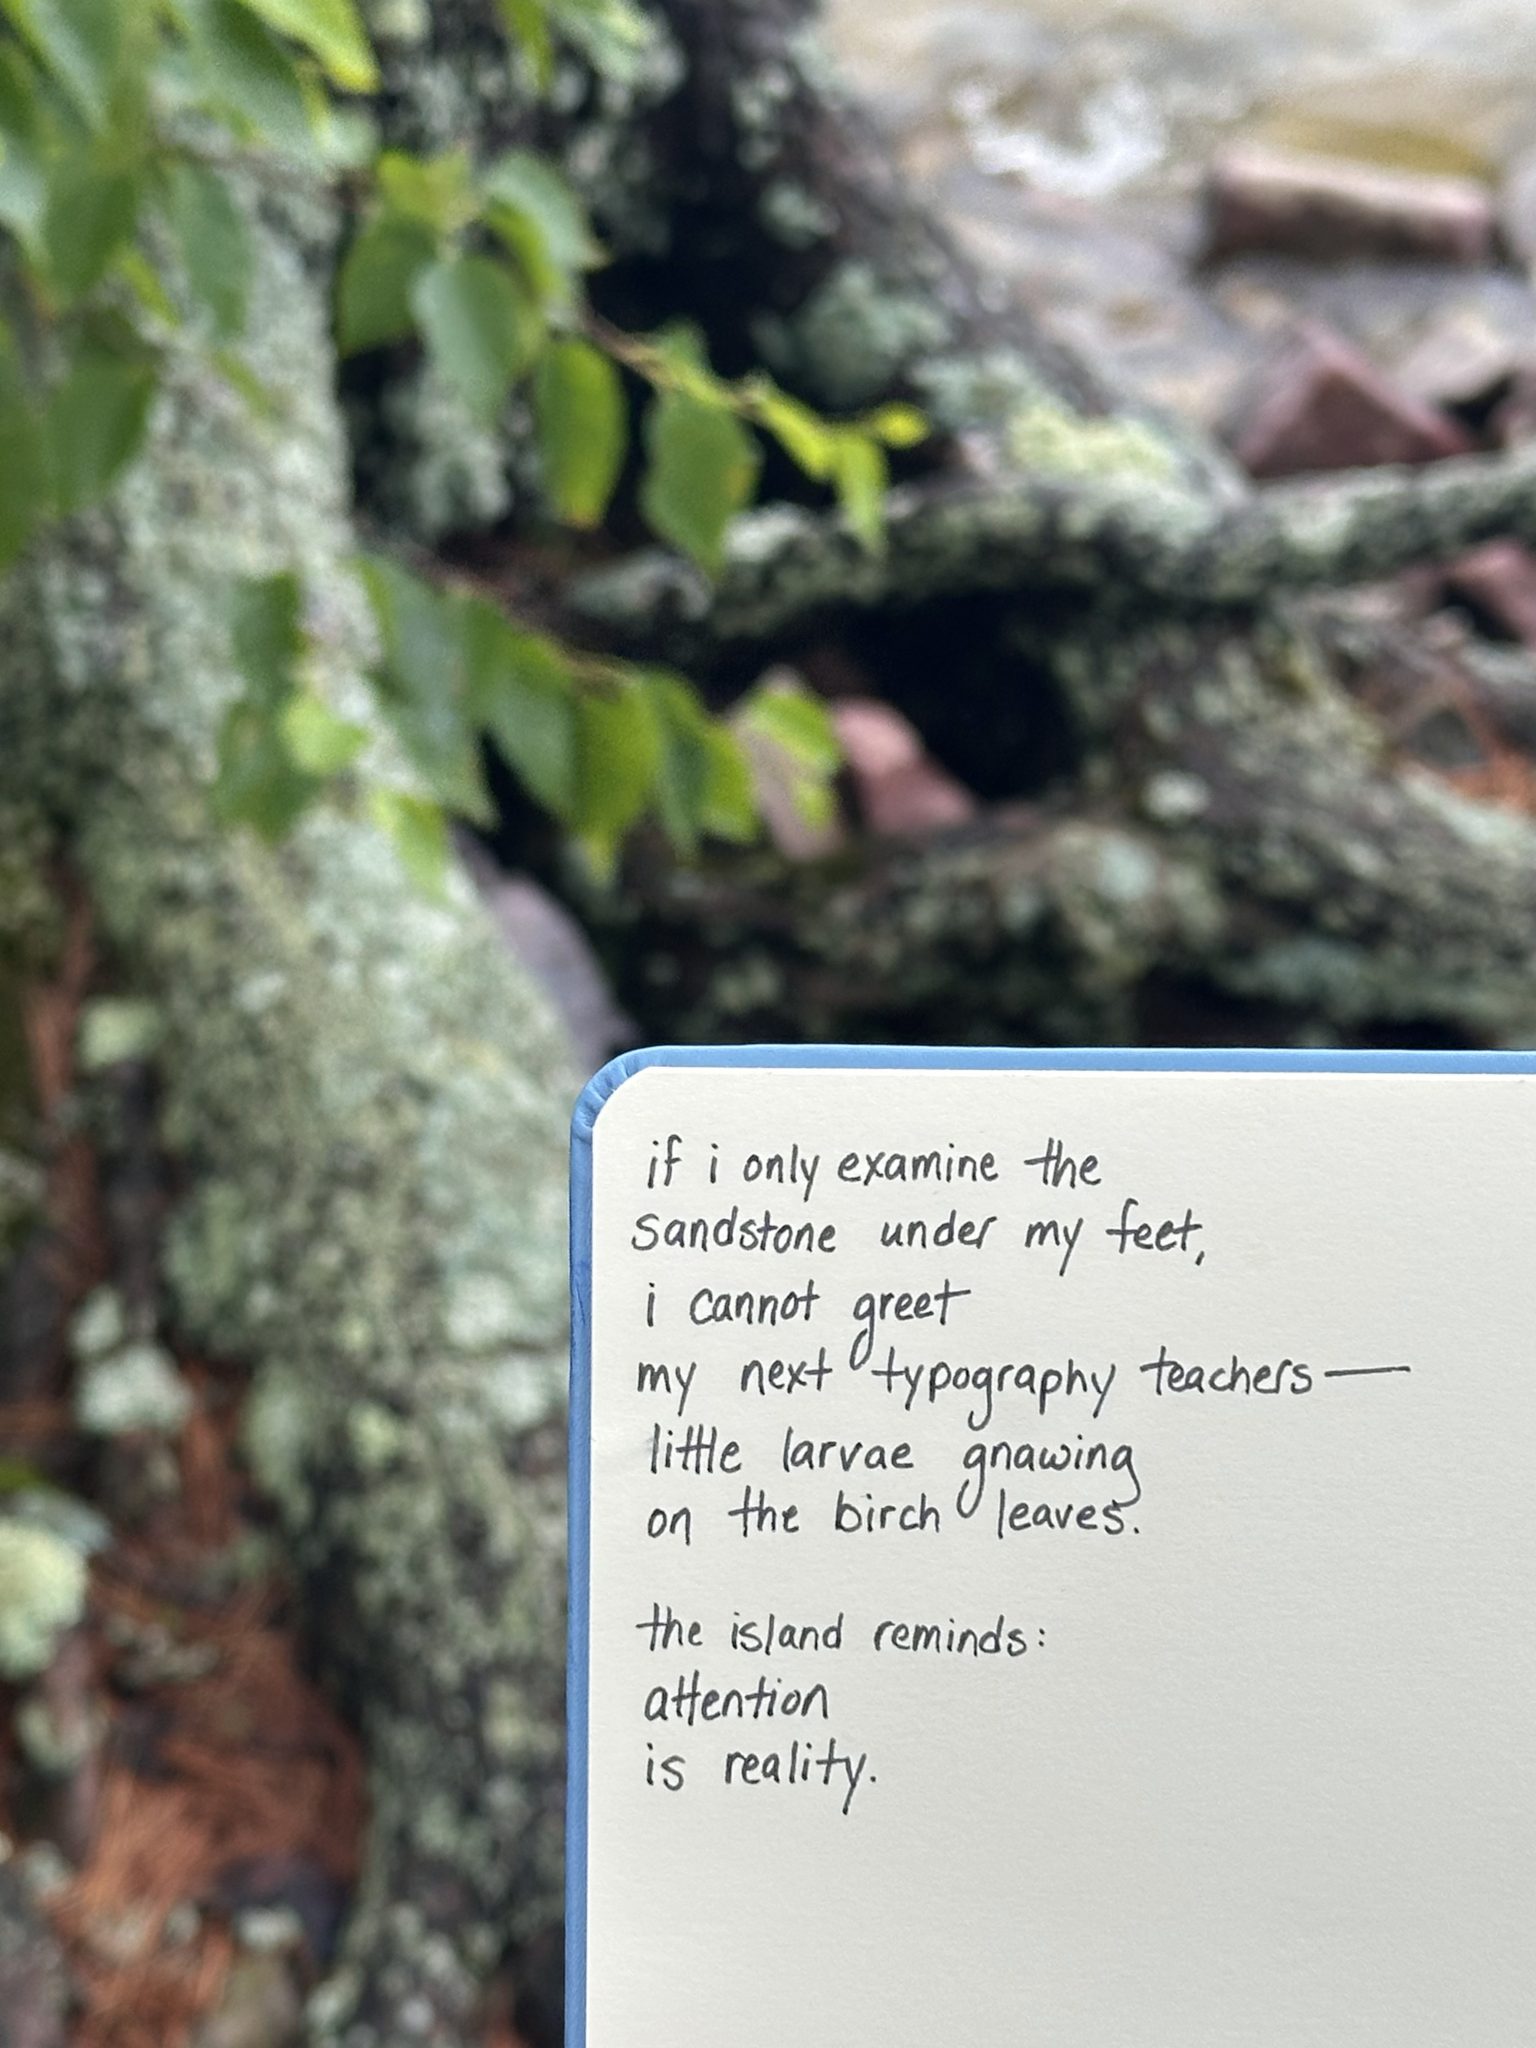 if i only examine the
sandstone under my feet,
i cannot greet
my next typography teachers—
little larvae gnawing
on the birch leaves.
the island reminds:
attention
is reality.